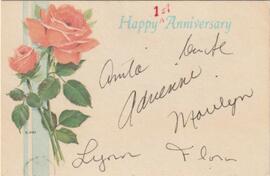 1st
Happy Anniversary
Anita
Adrienne
Marilyn
Lynn Flora